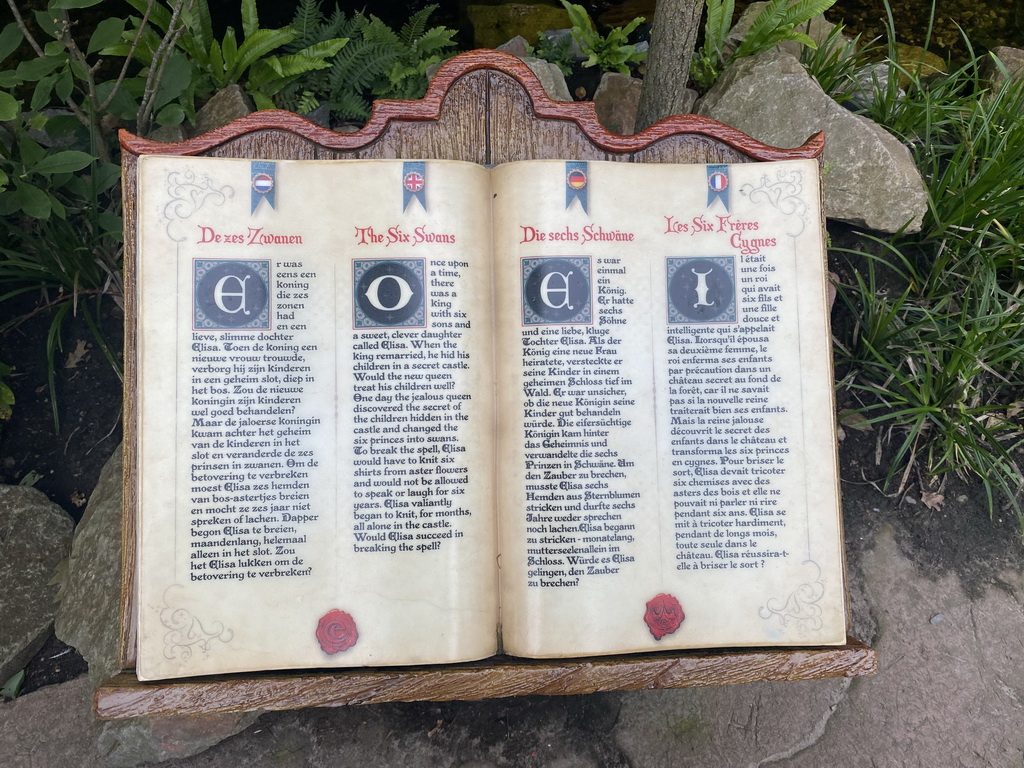 De zes Zwanen
Er was
eens een
koning
die zes
zonen
had
en een
lieve, slimme dochter
Elisa. Toen de koning een
nieuwe vrouw trouwde,
verborg hij zijn kinderen
in een geheim slot, diep in
het bos. Zou de nieuwe
koningin zijn kinderen
wel goed behandelen?
Maar de jaloerse koningin
kwam achter het geheim
van de kinderen in het
slot en veranderde de zes
prinsen in zwanen. Om de
betovering te verbreken
moest Elisa zes hemden
van bos-astertjes breien
en mocht ze zes jaar niet
spreken of lachen. Dapper
begon Elisa te breien,
maandenlang, helemaal
alleen in het slot. Zou
het Elisa lukken om de
betovering te verbreken?
The Six Swans
Once upon
a time,
there
was a
king
with six
sons and
a sweet, clever daughter
called Elisa. When the
king remarried, he hid his
children in a secret castle.
Would the new queen
treat his children well?
One day the jealous queen
discovered the secret of
the children hidden in the
castle and changed the
six princes into swans.
To break the spell, Elisa
would have to knit six
shirts from aster flowers
and would not be allowed
to speak or laugh for six
years. Elisa valiantly
began to knit, for months,
all alone in the castle.
Would Elisa succeed in
breaking the spell?
Die sechs Schwäne
Es war
einmal
ein
König.
Er hatte
sechs
Söhne
und eine liebe, kluge
Tochter Elisa. Als der
König eine neue Frau
heiratete, versteckte er
seine Kinder in einem
geheimen Schloss tief im
Wald. Er war unsicher,
ob die neue Königin seine
Kinder gut behandeln
würde. Die eifersüchtige
Königin kam hinter
das Geheimnis und
verwandelte die sechs
Prinzen in Schwäne. Um
den Zauber zu brechen,
musste Elisa sechs
Hemden aus Sternblumen
stricken und durfte sechs
Jahre weder sprechen
noch lachen.Elisa begann
zu stricken - monatelang,
mutterseelenallein im
Schloss. Würde es Elisa
gelingen, den Zauber
zu brechen?
Les Six Frères
Cygnes
Il était
une fois
un roi
qui avait
six fils et
une fille
douce et
intelligente qui s'appelait
Elisa. Lorsqu'il épousa
sa deuxième femme, le
roi enferma ses enfants
par précaution dans un
château secret au fond de
la forêt, car il ne savait
pas si la nouvelle reine
traiterait bien ses enfants.
Mais la reine jalouse
découvrit le secret des
enfants dans le château et
transforma les six princes
en cygnes. Pour briser le
sort, Elisa devait tricoter
six chemises avec des
asters des bois et elle ne
pouvait ni parler ni rire
pendant six ans. Elisa se
mit à tricoter hardiment,
pendant de longs mois,
toute seule dans le
château. Elisa réussira-t-
elle à briser le sort ?